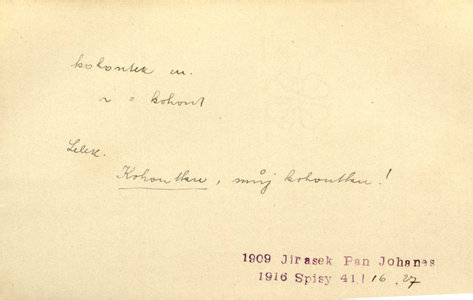 kohoutek m.
~ = kohout
Lelek.
Kohoutku, můj kohoutku!
1909 Jirasek Pan Johanes
1916 Spisy 41| 16.27